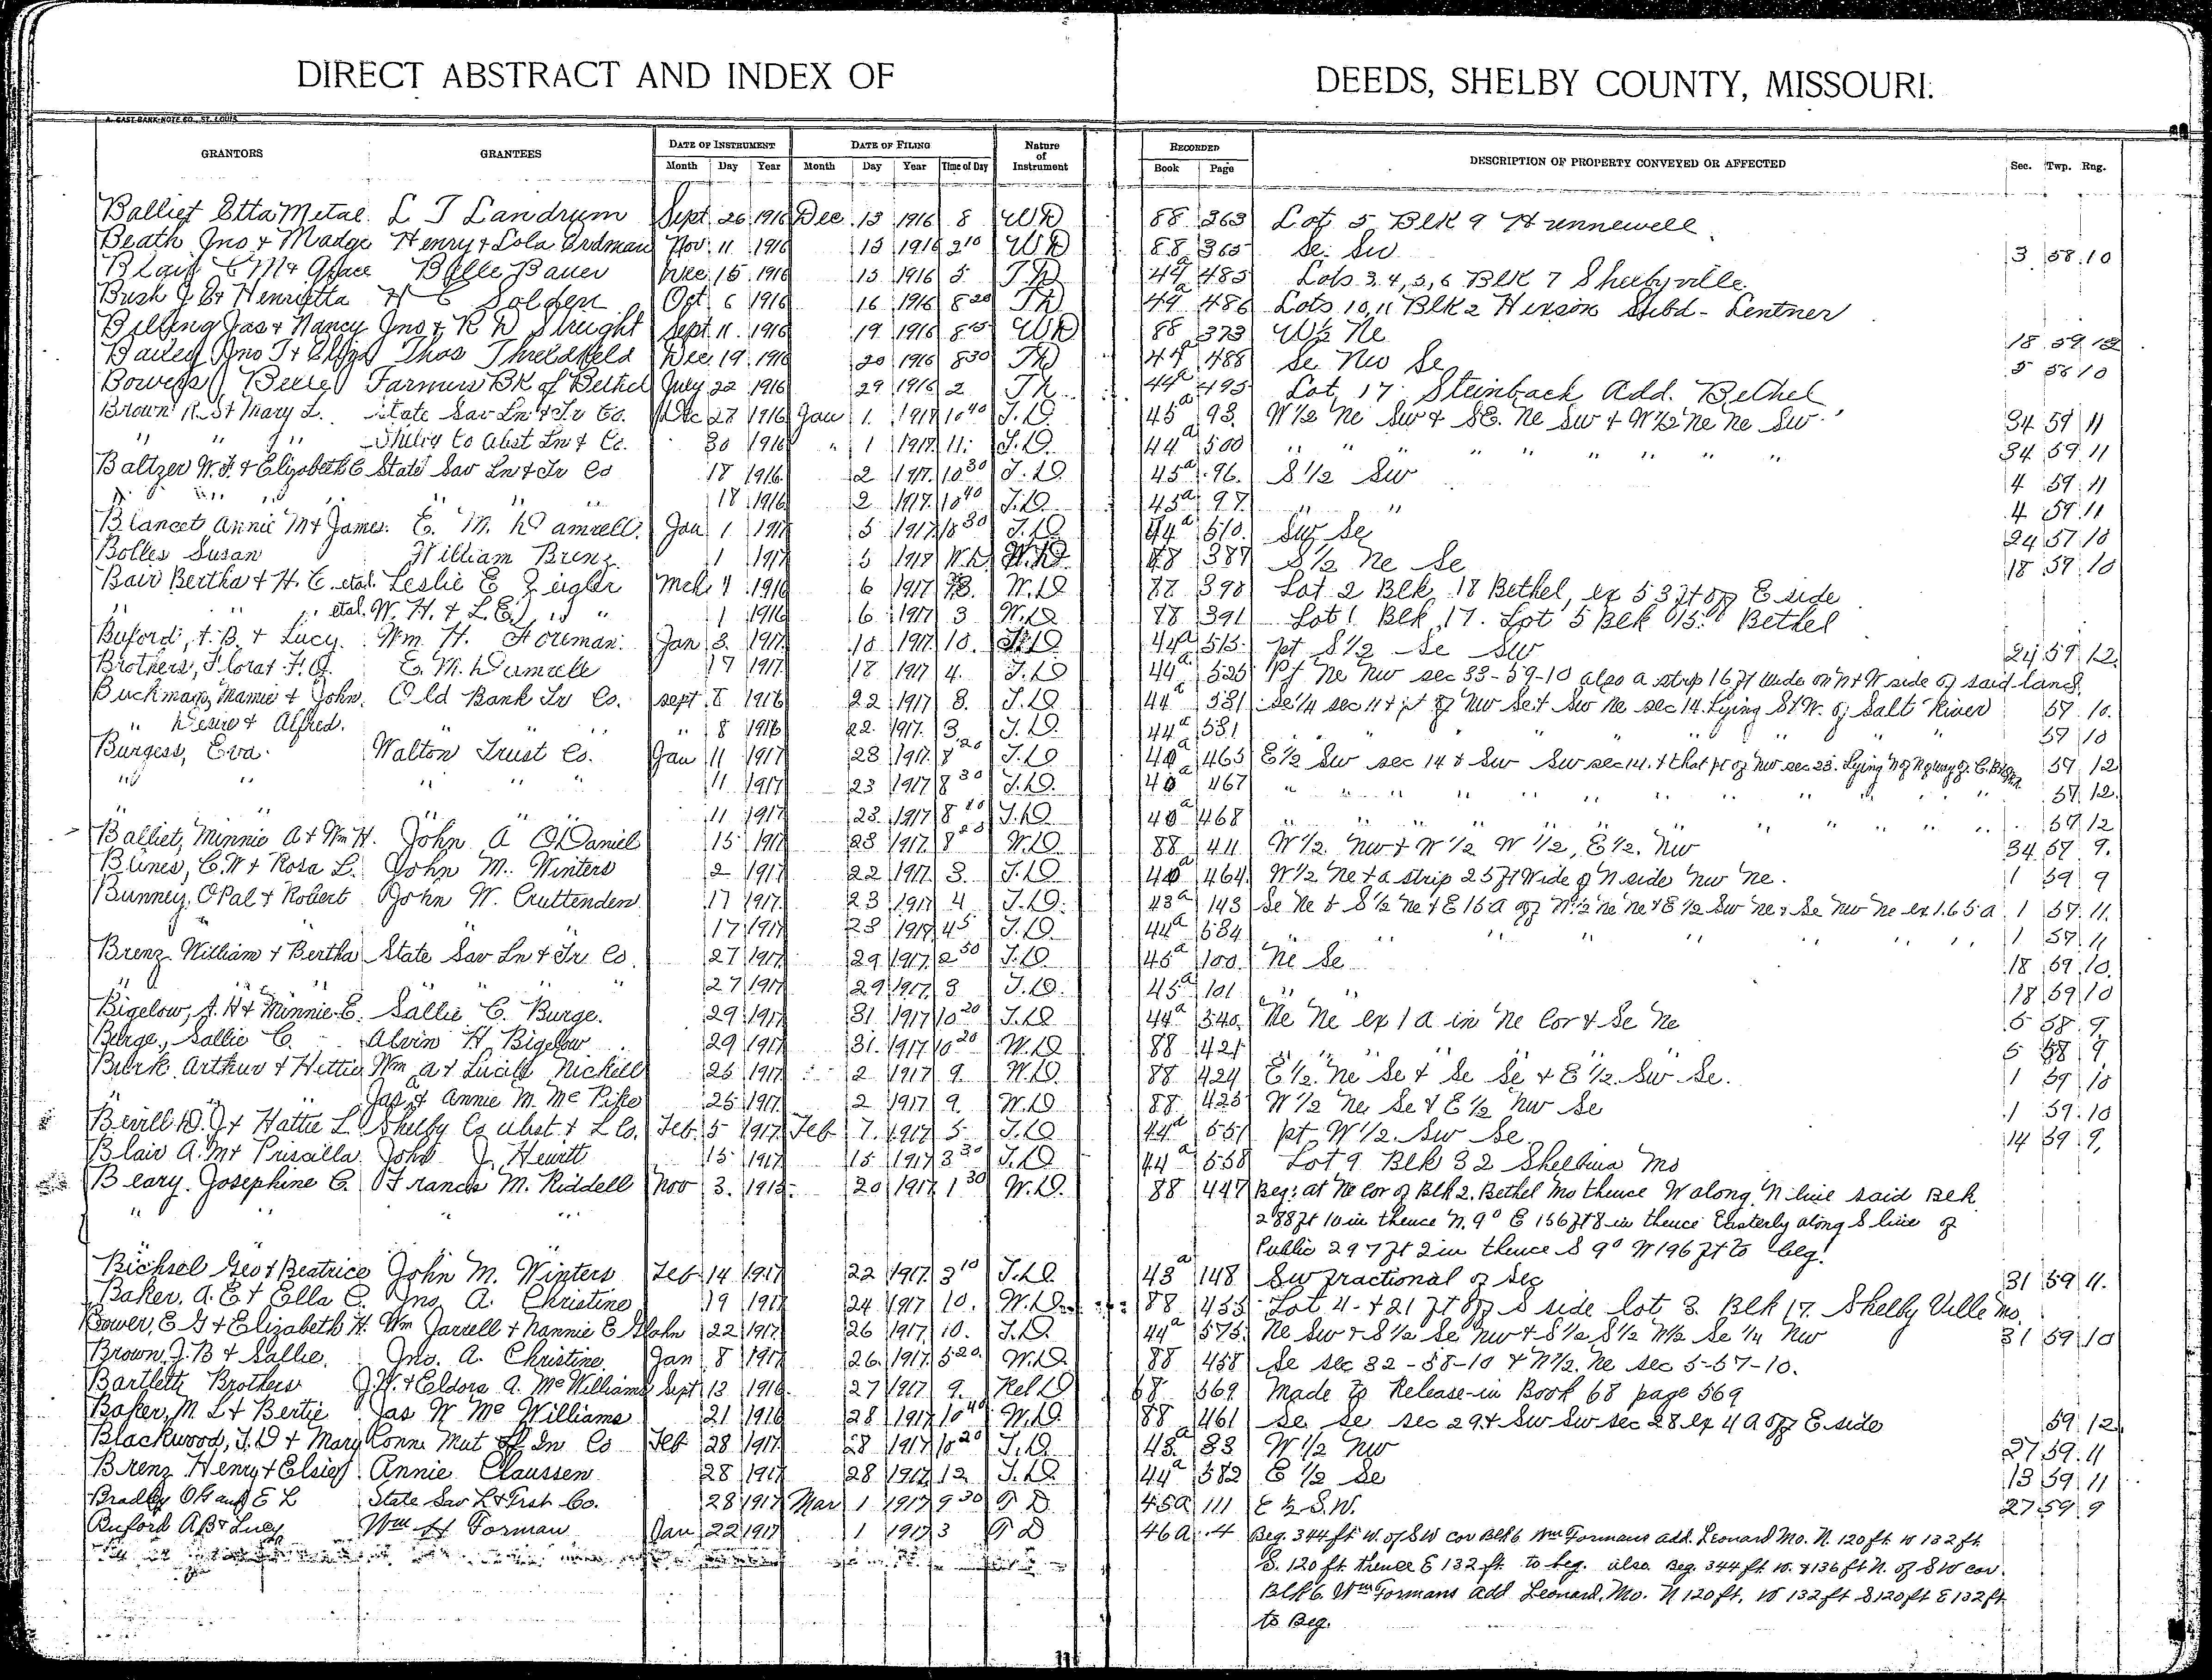 DIRECT ABSTRACT AND INDEX OF DEEDS, SHELBY COUNTY, MISSOURI.
GRANTORS GRANTEES DATE OF INSTRUMENT DATE OF FILING Nature of Instrument RECORDED DESCRIPTION OF PROPERTY CONVEYED OR AFFECTED Sec. Twp. Rng.
Month Day Year Month Day Year Time of Day Book Page
Balliet Etta M etal. L T Landrum Sept. 26 1916 Dec. 13 1916 8 WD 88 363 Lot 5 Blk 9 Hunnewell
Beath Jno & Madge Henry & Lola Ordman Nov. 11 1916 15 1916 2 10 WD 88 365 Se. Sw 3 58 10
Blair & Grace Belle Bauer Dec. 15 1916 15 1916 5 TD 44a 485 Lots 3, 4, 5, 6 Blk 7 Shelbyville
Bush J & Henrietta H C Solden Oct 6 1916 16 1916 8 20 TD 44a 486 Lots 10, 11 Blk 2 Hixson Subd - Lentner
Billing Jas & Nancy Jno & R D Streight Sept. 11 1916 19 1916 WD 88 373 W½ Ne 18 59 12
Bailey Jno T & Eliza Thos Threlkeld Dec. 19 1916 20 1916 8 30 TD 44a 488 Se Nw Se 5 58 10
Bowers Belle Farmers Bk of Bethel July 22 1916 29 1916 2 TD 44a 495 Lot 17 Steinback Add. Bethel
Brown R. S & Mary L. State Sav Ln & Tr Co. Dec 27 1916 Jan 1 1917 10 40 T.D. 45a 93 W 1/2 Ne Sw & SE. Ne Sw & W 1/2 Ne Ne Sw 34 59 11
" " " Shelby Co Abst Ln & Co. 30 1916 " 1 1917 11 T.D. 44a 500 " " " " " " " " 34 59 11
Baltzer W. F. & Elizabeth E State Sav Ln & Tr Co 18 1916 2 1917 10 30 T.D. 45a 96 S 1/2 Sw 4 59 11
" " " " " " 18 1916 2 1917 10 40 T.D. 45a 97 " " 4 59 11
Blancet Annie M & James. E. M. Damrell. Jan 1 1917 5 1917 T.D. 44a 510 Sw Se 24 57 10
Bolles Susan William Brenz 1 1917 5 1917 W.D. 88 387 S 1/2 Ne Se 18 59 10
Bair Bertha & H. C. etal. Leslie E Zeigler Mch 4 1916 6 1917 3 W.D 88 390 Lot 2 Blk 18 Bethel, ex 53 ft off E side
" " " etal. W. H. & L. E. " " 1 1916 6 1917 3 W.D 88 391 Lot 1 Blk 17. Lot 5 Blk 15. Bethel
Buford, A. B. & Lucy. Wm. H. Foreman. Jan 3 1917 10 1917 10 T.D 44a 515 pt S 1/2 Se Sw 24 59 12
Brothers, Flora & F. J. E. M. Damrell 17 1917 18 1917 4 T.D 44a 525 Pt Ne Nw sec 33-59-10 also a strip 16 ft wide on N & W side of said land.
Buckman, Mamie & John. Old Bank Tr Co. Sept. 8 1916 22 1917 3 T.D 44a 531 Se 1/4 sec 11 & pt of Nw Se & Sw Ne sec 14. Lying S & W. of Salt River 57 10
" Desire & Alfred. " " " " " 8 1916 22 1917 3 T.D. 44a 531 " " " " " 57 10
Burgess, Eva. Walton Trust Co. Jan 11 1917 23 1917 8 20 T.D 40a 465 E 1/2 Sw sec 14 & Sw Sw sec 14. & that pt of Nw sec 23. Lying N of R of way of C.B. 57 12
" " " " " 11 1917 23 1917 8 30 T.D. 40a 467 " " " " " " " 57 12
" " " " " 11 1917 23 1917 8 T.D 40a 468 " " " " " " " 57 12
Balliet, Minnie A & Wm H. John A O'Daniel 15 1917 23 1917 8 W.D 88 411 W 1/2 Nw & W 1/2 W 1/2, E 1/2 Nw 34 57 9
Blines, C. W & Rosa L. John M. Winters 2 1917 22 1917 3 T.D 40a 464 W 1/2 Ne & a strip 25 ft wide of N side Nw Ne. 1 59 9
Bunney, Opal & Robert John W. Cruttenden 17 1917 23 1917 4 T.D. 43a 143 Se Ne & S 1/2 Ne & E 15 a off W 1/2 Ne Ne & E 1/2 Sw Ne & Se Nw Ne ex 1.65 a 1 57 11
" " " " 17 1917 23 1917 T.D. 44a 534 " " " " " " 1 57 11
Brenz William & Bertha State Sav Ln & Tr Co. 27 1917 29 1917 2 50 T.D. 45a 100 Ne Se 18 59 10
" " " " " 27 1917 29 1917 3 T.D. 45a 101 " " 18 59 10
Bigelow, A. H & Minnie E. Sallie C. Burge. 29 1917 31 1917 10 20 T.D 44a 540 Ne Ne ex 1 a in Ne Cor & Se Ne 5 58 9
Burge, Sallie C. Alvin H. Bigelow 29 1917 31 1917 10 20 W.D 88 421 " " " " " " 5 58 9
Burk Arthur & Hettie Wm A & Lucile Nickell 25 1917 2 1917 9 W.D. 88 424 E 1/2 Ne Se & Se Se & E 1/2 Sw Se. 1 59 10
" " " Jas & Annie M. McPike 25 1917 2 1917 9 W.D 88 425 W 1/2 Ne Se & E 1/2 Nw Se 1 59 10
Bevill D. J & Hattie L. Shelby Co Abst. & L Co. Feb. 5 1917 Feb 7 1917 5 T.D 44a 551 pt W 1/2 Sw Se. 14 59 9
Blair A. M & Priscilla John J. Hewitt 15 1917 15 1917 3 30 T.D 44a 558 Lot 9 Blk 32 Shelbina Mo
Beary. Josephine C. Francis M. Riddell Nov 3. 1915 20 1917 1 30 W.D. 88 447 Beg: at Ne Cor of Blk 2, Bethel Mo thence W along N line said Blk
" " " " 288 ft 10 in thence N. 9° E 156 ft 8 in thence Easterly along S line of
Public 297 ft 2 in thence S 9° W 196 ft to beg.
Bichsel Geo & Beatrice John M. Winters Feb 14 1917 22 1917 3 10 T.D. 43a 148 Sw fractional of Sec 31 59 11
Baker, A. E & Ella C. Jno. A. Christine 19 1917 24 1917 10 W.D. 88 455 Lot 4 - & 21 ft off S side lot 3. Blk 17. Shelby Ville Mo.
Bower, E G & Elizabeth H. Wm Jarrell & Nannie E 22 1917 26 1917 10 T.D. 44a 575 Ne Sw & S 1/2 Se Nw & S 1/2 S 1/2 N 1/2 Se 1/4 Nw 31 59 10
Brown, J. B & Sallie. Jno. A. Christine Jan 8 1917 26 1917 5 20 W.D. 88 458 Se sec 32-58-10 & N 1/2 Ne sec 5-57-10.
Bartlett Brothers J. W. & Eldora A. McWilliams Sept 13 1916 27 1917 9 Rel D 68 569 Made to Release in Book 68 page 569
Baker, M. L & Bertie Jas W McWilliams 21 1916 28 1917 10 40 W.D. 88 461 Se Se sec 29 & Sw Sw sec 28 ex 4 a off E side 59 12
Blackwood, J. D & Mary Conn Mut Lf In Co Feb 28 1917 28 1917 10 20 T.D. 43a 83 W 1/2 Nw 27 59 11
Brenz Henry & Elsie Annie Claussen 28 1917 28 1917 12 T.D. 44a 582 E 1/2 Se 13 59 11
Bradley O G and E L State Sav L & Trst Co. 28 1917 Mar 1 1917 9 30 T D 45a 111 E ½ S.W. 27 59 9
Buford A B & Lucy Wm H Forman Jan 22 1917 1 1917 3 T D 46a 4 Beg. 344 ft W. of SW cor Blk 6 Wm Formans add. Leonard Mo. N. 120 ft W 132 ft
S. 120 ft. thence E 132 ft. to beg. also Beg. 344 ft W. & 136 ft N. of SW cor.
Blk 6. Wm Formans add Leonard, Mo. N 120 ft, W 132 ft S 120 ft E 132 ft
to Beg.